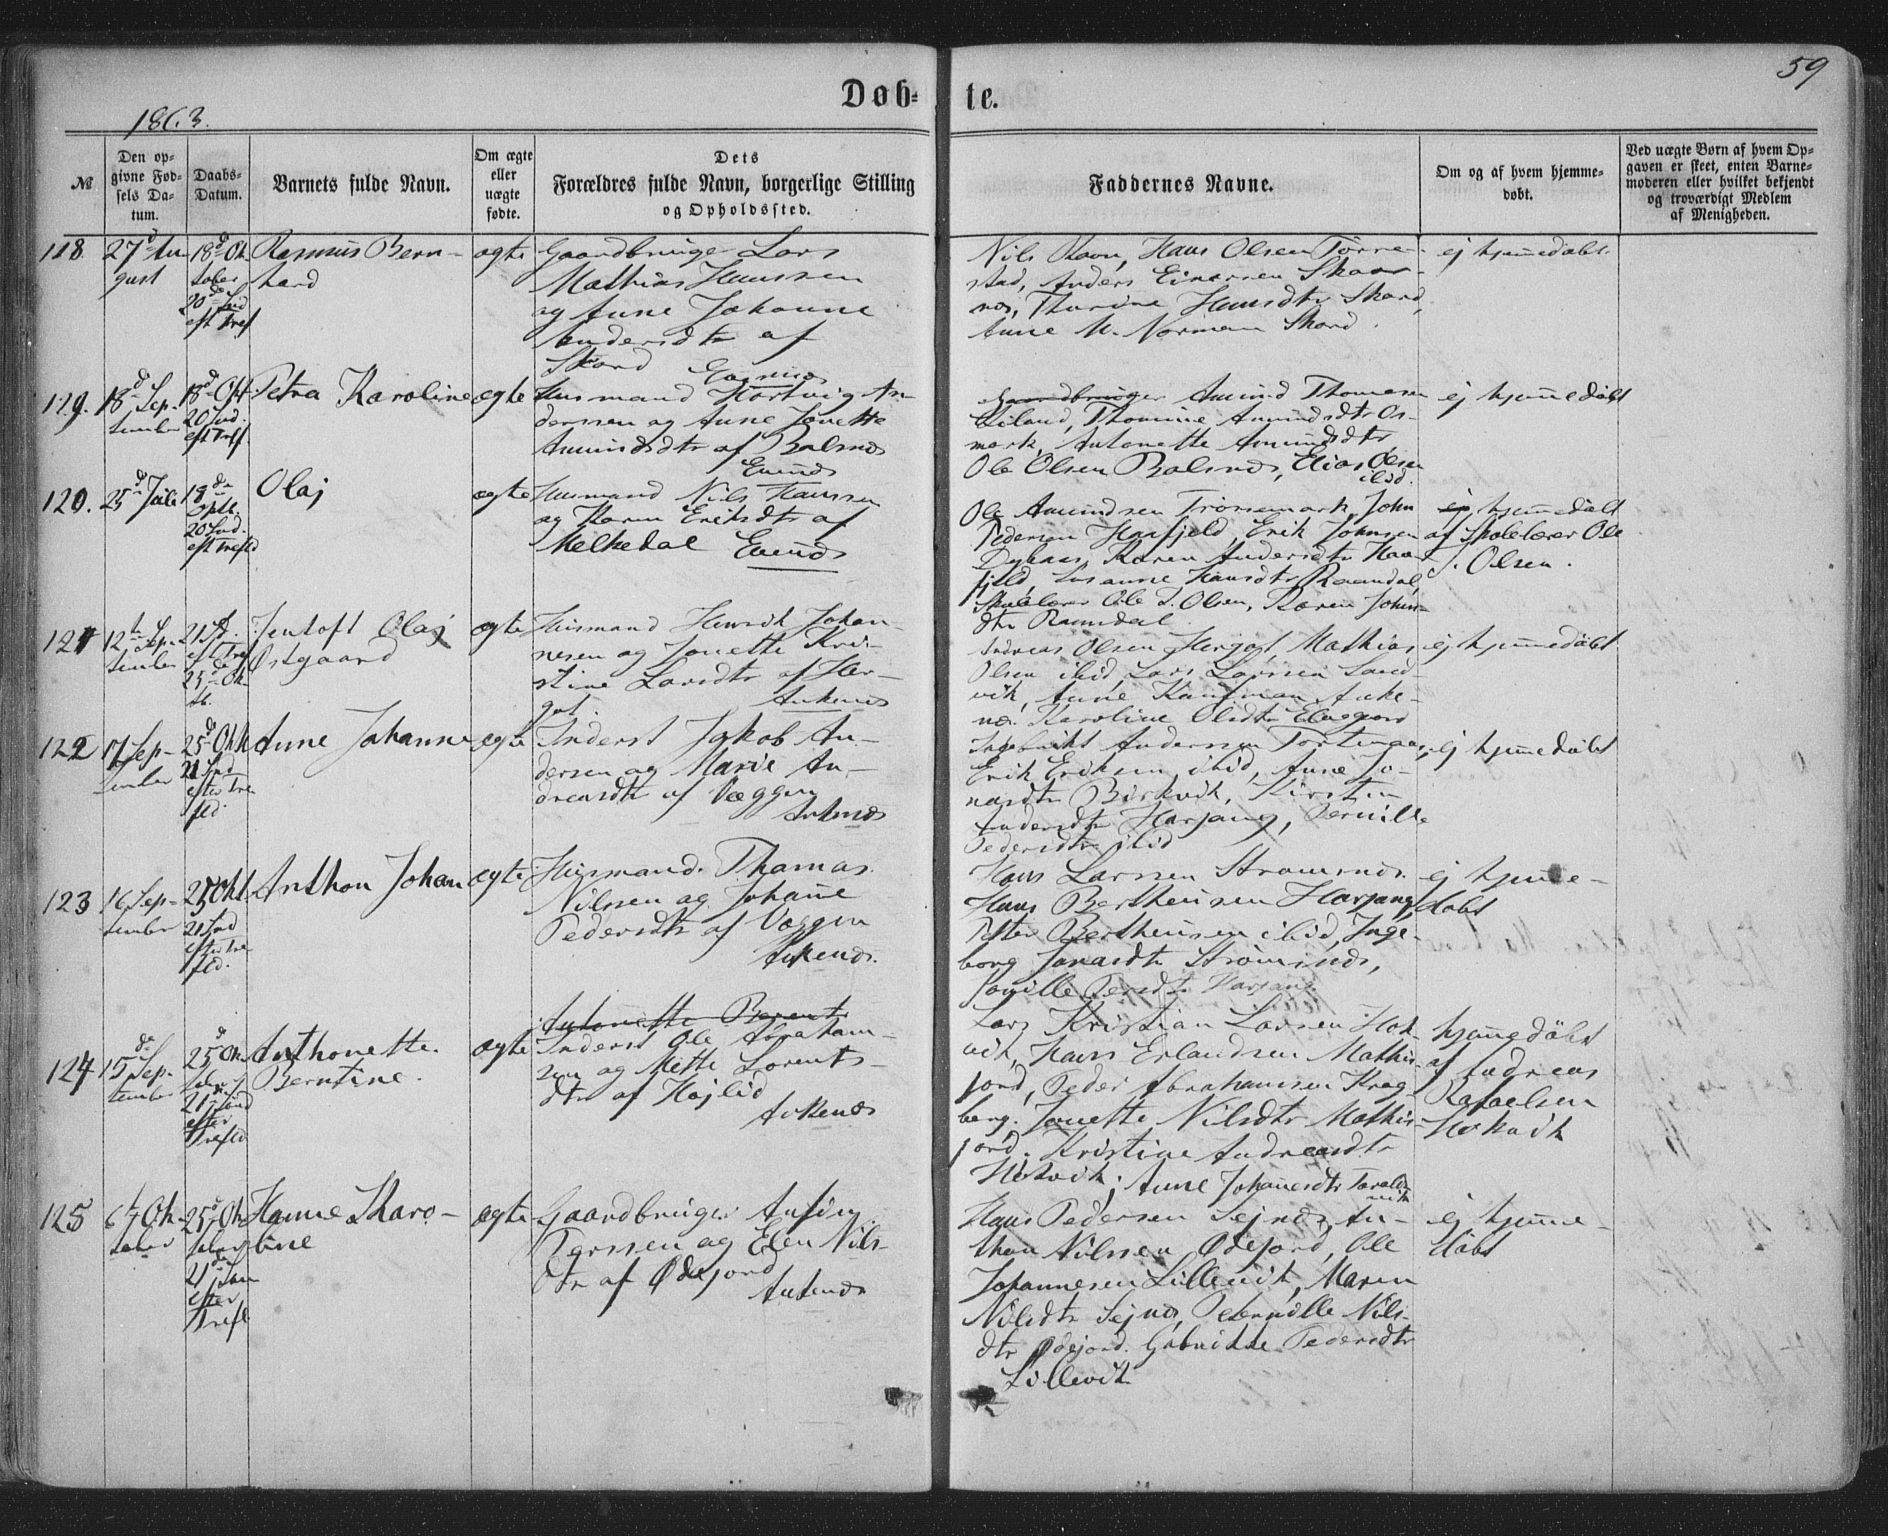 59
Døb-
te.
1863.
№
Den op-
givne Fød-
sels Da-
tum.
Daabs-
Datum.
Barnets fulde Navn.
Om ægte
eller
uægte
fødte.
Dets
Forældres fulde Navn, borgerlige Stilling
og Opholdssted.
Faddernes Navne.
Om og af hvem hjemme-
døbt.
Ved uægte Børn af hvem Op-
gaven er skeet, enten Barne-
moderen eller hvilket bekjendt
og troværdigt Medlem
af Menigheden.
118.
27d Au
gust
18d Ok
tober
20de Snd
eft Tref
Rasmus Bern-
hard
ægte
Gaardbruger Lars
Mathias Hanssen
og Anne Johanne
Andersdtr af
Skard
Evenæs
Nils Ravn, Hans Olsen Tørre-
stad, Anders Einarsen Skaar-
næs, Thurine Hansdtr Skard,
Anne M. Norman Skard.
ej hjemmedøbt
119.
18d Sep-
tember
18d Okt
20 Snd
eft Tref
Petra Karoline
ægte
Husmand Hartvig An-
derssen og Anne Jonette
Amundsdtr af Balsnes
Evenæs
Gaardbruger Amund Thomesen
Liland, Thomine Amundsdtr Os-
mark, Antonette Amundsdtr
Ole Olsen Balsnes, Elias Olsen
ibid.
ej hjemmedøbt
120.
25d Juli
18de
20 Snd.
eft Trefld
Olaj
ægte
Husmand Nils Hanssen
og Karen Eriksdtr af
Melkedal Evenæs
Ole Amundsen Trønsemark, John
Pedersen Haafjeld, Erik Johnsen
Dybaas, Karen Andersdtr Haa
fjeld, Susanne Hansdtr Ramdal,
Skolelærer Ole S. Olsen, Karen Johns-
dtr Ramsdal
ej hjemmedøbt
af Skolelærer Ole
S. Olsen.
121
12te Sep-
tember
21 Sd.
eft Tref
25de Ok
tb.
Jentoft Olaj
Østgaard
ægte
Husmand Henrik Johan-
nesen og Jonette Kri-
stine Larsdtr af Her-
got.
Ankenæs
Andreas Olsen Hergot Mathias
Olsen ibid, Lars Larssen Sand-
vik, Anne Kaufman Anke-
næs. Karoline Olsdtr Elvegaard
ej hjemmedøbt
122
17 Sep-
tember
25d Okt
21 Snd
efter Tre
fld.
Anne Johanne
ægte
Inderst Jakob An-
dersen og Marie An-
dreasdtr af Væggen
Ankenæs
Ingebrikt Anderssen
Erik Eriksen ibid, Anne Jo-
nasdtr Birkvik, Kirsten
Andersdtr Harjang, Pernille
Pedersdtr ibid
ej hjemmedøbt
123
16 Sep-
tember
25 Okt
21 Snd
efter Tre
fld.
Anthon Johan
ægte
Husmand Thomas
Nilssen og Johanne
Pedersdtr af Væggen
Ankenæs.
Hans Larssen Strømsnes.
Hans Bertheusen Harjang,
Peter Bertheusen ibid, Inge-
borg Jonasdtr Strømsnes,
Pernille Persdtr Harjang.
ej hjemme-
døbt
124
15de Sep-
tember
25d Ok
tober
21de Snd
efter
Trefld
Anthonette
Berntine.
ægte
Antonette Berent
Inderst Ole Abraham-
sen og Mette Lorents-
dtr af Højlid
Ankenæs
Lars Kristian Larsen Hok
vik, Hans Erlandsen Mathis-
jord, Peder Abrahamsen Krag-
berg. Jonette Nilsdtr Mathis-
jord. Kristine Andreasdtr
Hokvik; Anne Johannesdtr Taralds
vik
hjemmedøbt
af Andreas
Rafaelsen
Hokvik
125
6te Ok-
tober
25d Ok
tober
21de Søn
efter
Trefl
Hanne Skaro-
line
ægte
Gaardbruger Anfin
Perssen og Elen Nils-
dtr af Ødejord
Ankenæs
Hans Pedersen Sejnæs An-
thon Nilssen Ødejord, Ole
Johannesen Lillevik, Maren
Nilsdtr Sejnæs, Peternelle Nils-
dtr Ødejord. Gabrikke Pedersdtr
Lillevik
ej hjemme-
døbt